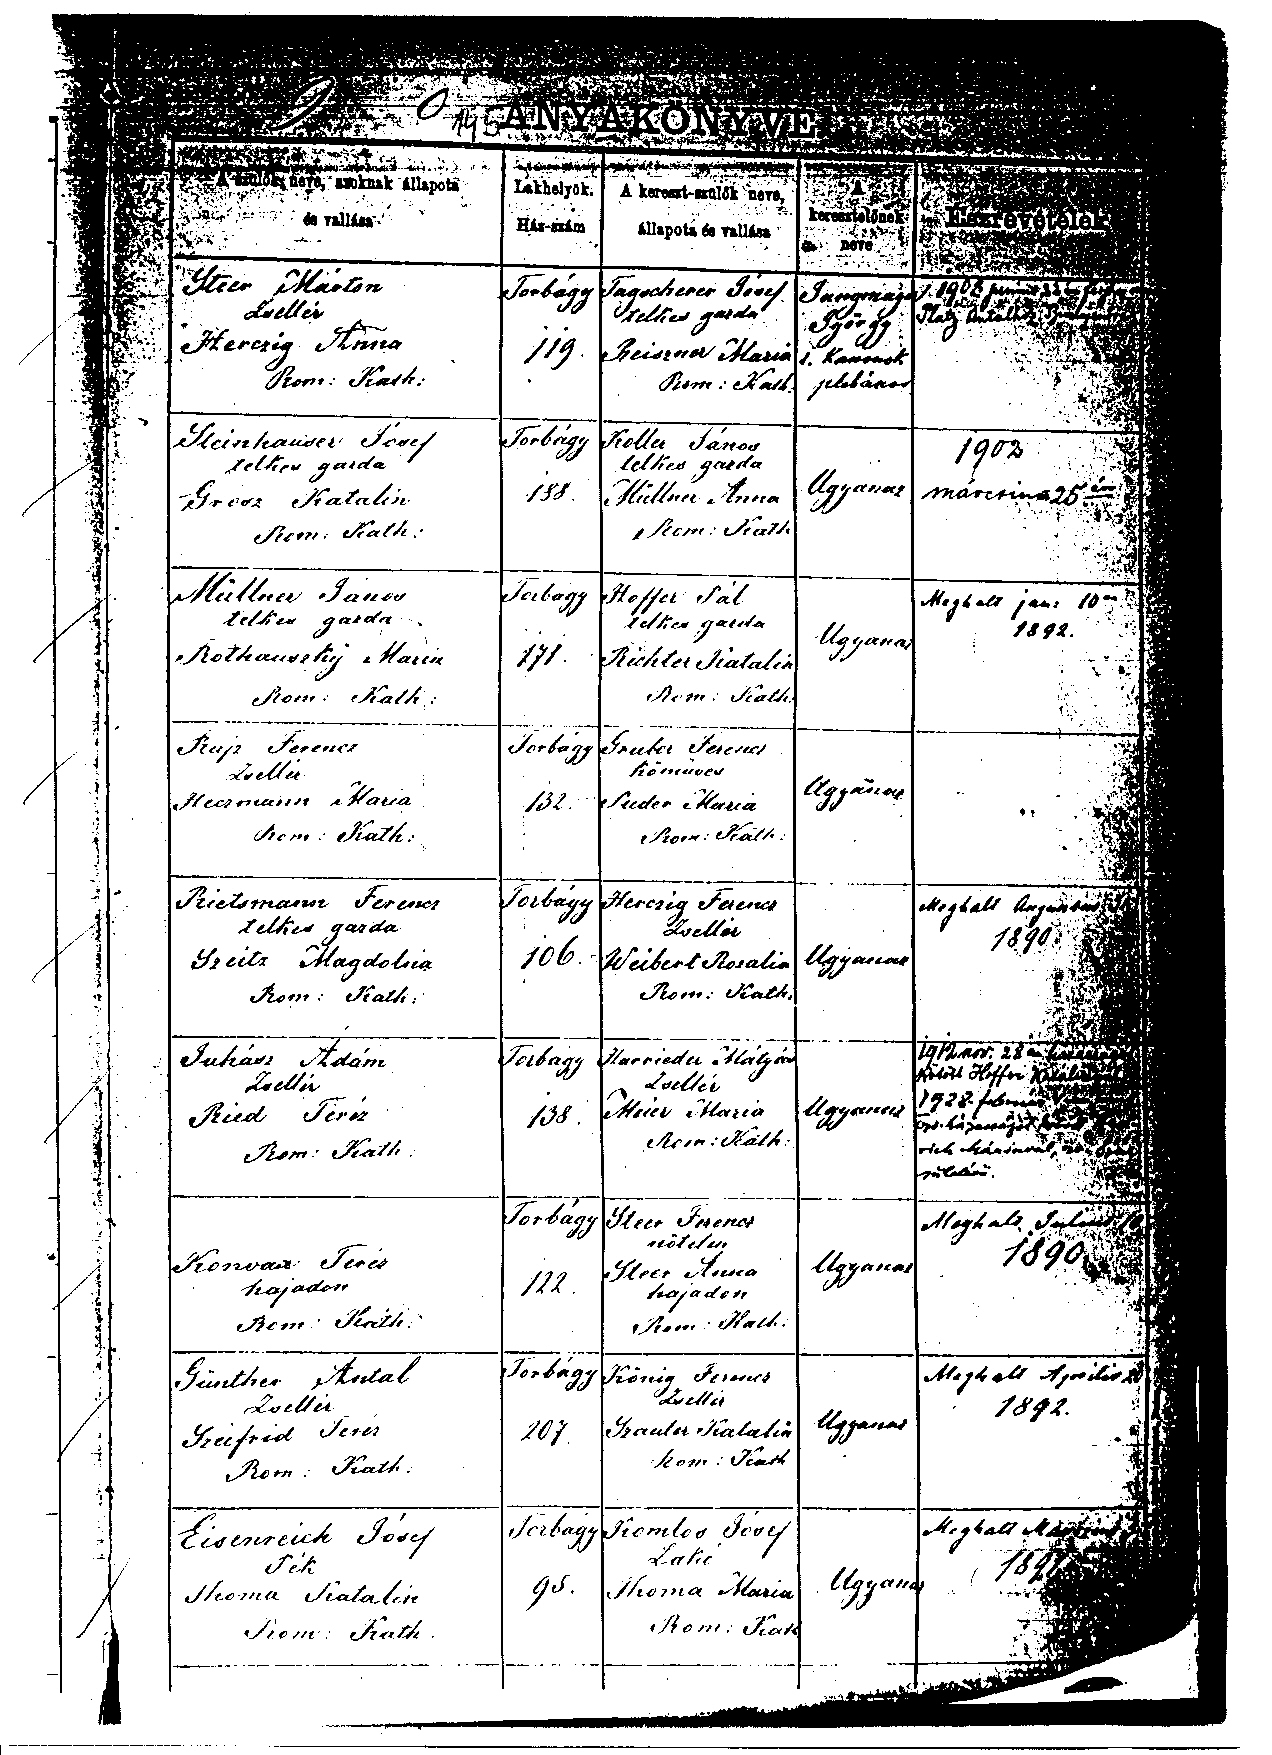 145 ANYAKÖNYVE
A szülők neve, azoknak állapota
és vallása
Lakhelyök.
Ház-szám
A kereszt-szülők neve,
állapota és vallása
A
keresztelőnek
neve
Észrevételek
Steer Márton
Zsellér
Herczig Anna
Rom: Kath:
Torbágy
119.
Tagscherer Jósef
telkes garda
Reiszner Maria
Rom: Kath.
György
s. Kanonok
plebános
1908
Steinhauser Jósef
telkes garda
Grosz Katalin
Rom: Kath:
Torbágy
188.
Koller János
telkes garda
Müllner Anna
Rom: Kath
Ugyanaz
1903
márczius 25 én
Müllner János
telkes garda
Rothauszky Maria
Rom: Kath:
Torbagy
171.
Hoffer Pál
telkes garda
Richter Katalin
Rom: Kath.
Ugyanaz
Meghalt jan: 10én
1892.
Rajz Ferencz
Zsellér
Heermann Maria
Rom: Kath:
Torbágy
132.
Gruber Ferencz
Kömüves
Suder Maria
Rom: Kath:
Ugyanaz
Rietsmann Ferencz
telkes garda
Szeitz Magdolna
Rom: Kath:
Torbágy
106.
Herczig Ferencz
Zsellér
Weibert Rosalia
Rom: Kath.
Ugyanaz
Meghalt Augusztus
1890.
Juhász Ádám
Zsellér
Ried Teréz
Rom: Kath:
Torbagy
138.
Harrieder Mátyás
Zsellér
Meier Maria
Rom: Kath:
Ugyanaz
1912. nov. 28
Kötött Hoffer
1928. február
születésü.
Konvax Teréz
hajadon
Rom: Kath:
Torbágy
122.
Steer Ferencz
nötelen
Steer Anna
hajadon
Rom: Kath:
Ugyanaz
Meghalt Julius
1890.
Günther Antal
Zsellér
Szeifrid Teréz
Rom: Kath:
Torbágy
207.
König Ferencz
Zsellér
Szauter Katalin
Rom: Kath
Ugyanaz
Meghalt Április
1892.
Eisenreich Jósef
Pék
Thoma Katalin
Rom: Kath.
Torbágy
95.
Komlos Jósef
Lakó
Thoma Maria
Rom: Kath
Ugyanaz
Meghalt